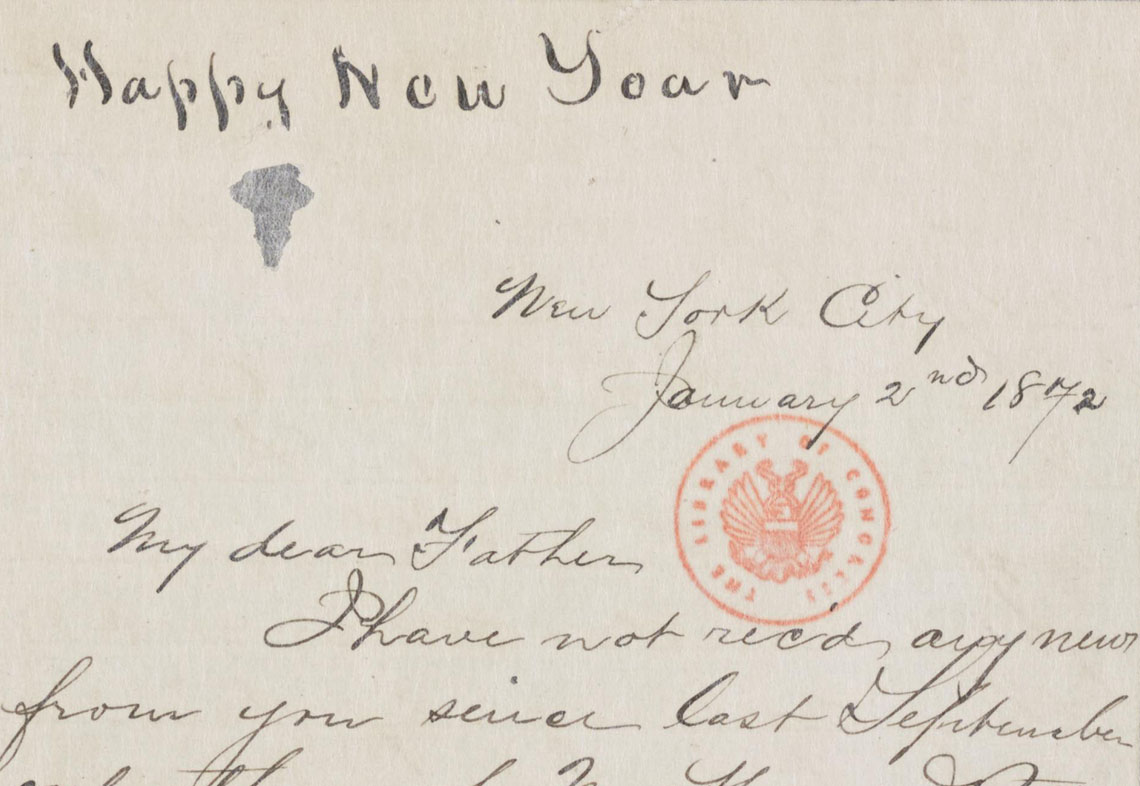 Happy New Year
New York City
January 2nd 1872
THE LIBRARY OF CONGRESS
My dear Father
I have not rec'd any news
from you since last September